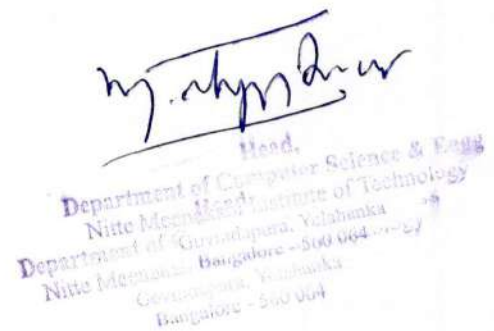 Head,
Department of Computer Science & Engg
Nitte Meenakshi Institute of Technology
Head,
Department of
Govindapura, Yelahanka
Nitte Meenakshi
Bangalore - 560 064
Govindapura, Yelahanka
Bangalore - 560 064